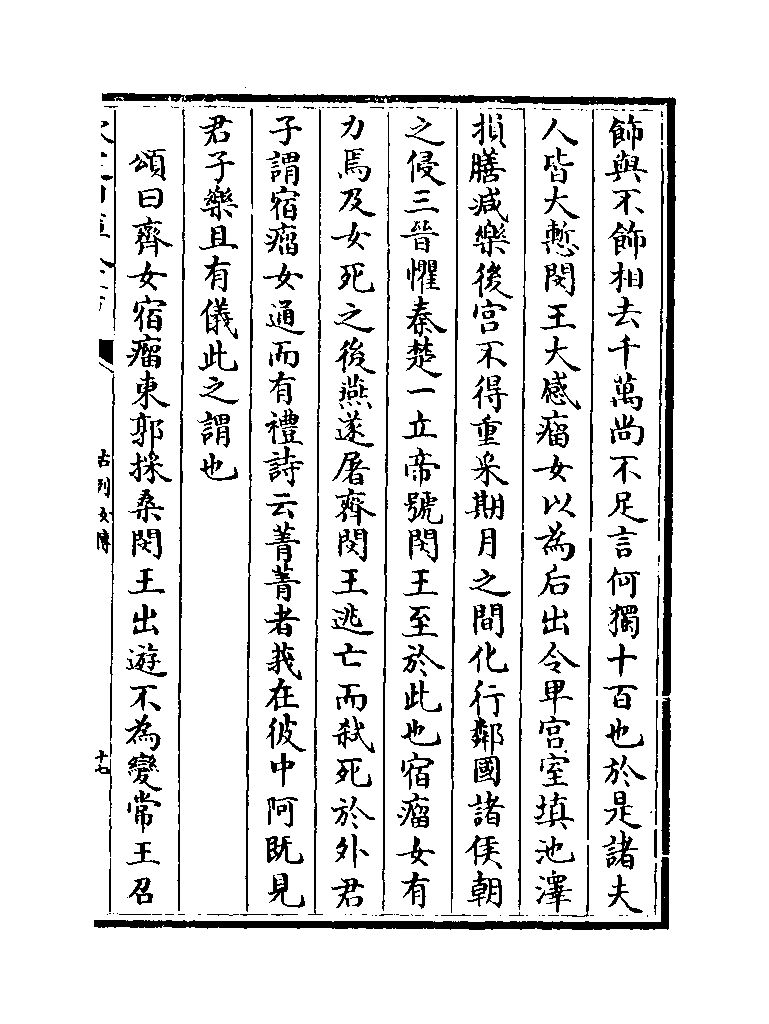 飾與不飾相去千萬尚不足言何獨十百也於是諸夫
人皆大慙閔王大感瘤女以為后出令卑宫室填池澤
損膳減樂後宫不得重采期月之間化行鄰國諸侯朝
之侵三晉懼秦楚一立帝號閔王至於此也宿瘤女有
力焉及女死之後燕遂屠齊閔王逃亡而弑死於外君
子謂宿瘤女通而有禮詩云菁菁者莪在彼中阿既見
君子樂且有儀此之謂也
頌曰齊女宿瘤東郭採桑閔王出遊不為變常王召
古列女傳
十七